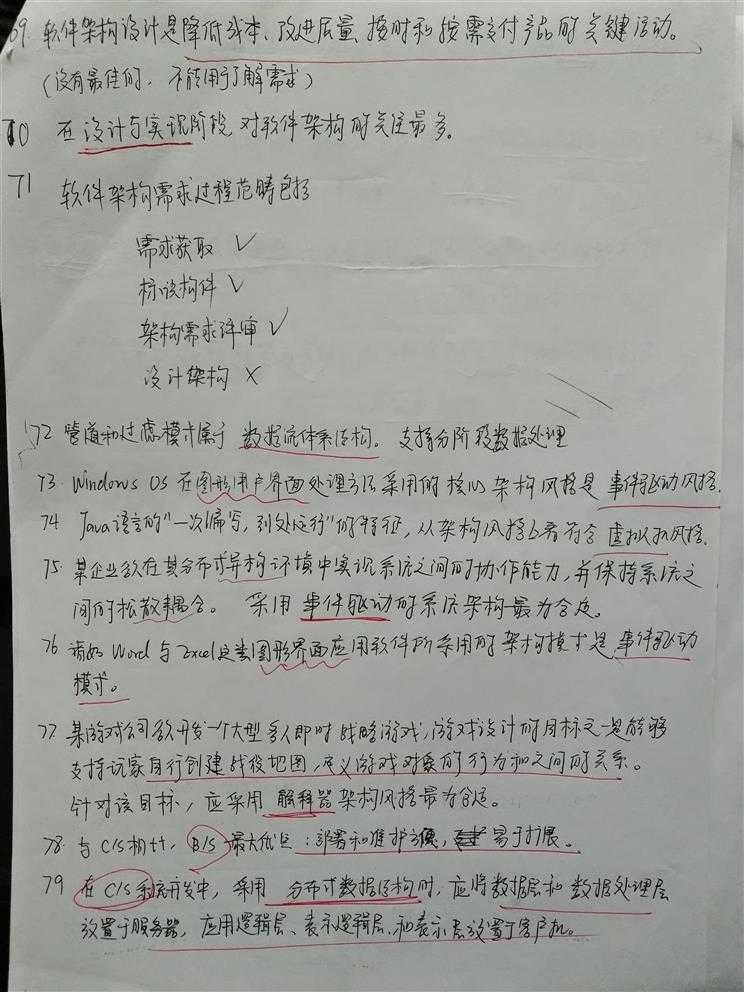 69. 软件架构设计是降低成本、改进质量、按时和按需交付产品的关键活动。
(没有最佳的, 不能用于了解需求)
70 在设计与实现阶段对软件架构的关注最多。
71 软件架构需求过程范畴包括
需求获取 √
标识构件 √
架构需求评审 √
设计架构 ×
72 管道和过滤模式属于 数据流体系结构。 支持分阶段数据处理
73. Windows OS 在图形用户界面处理方法采用的核心架构风格是 事件驱动风格.
74 Java语言的"一次编写, 到处运行"的特征, 从架构风格上看符合 虚拟机风格.
75. 某企业欲在其分布式异构环境中实现系统之间的协作能力, 并保持系统之
间的松散耦合。 采用 事件驱动的系统架构最为合适。
76 诸如 Word 与 Excel这类图形界面应用软件所采用的架构模式是 事件驱动
模式。
77 某游戏公司欲开发一个大型多人即时战略游戏, 游戏设计的目标之一是能够
支持玩家自行创建战役地图, 定义游戏对象的行为和之间的关系。
针对该目标, 应采用 解释器 架构风格最为合适。
78. 与C/S相比, B/S 最大优点: 部署和维护方便, 易于扩展。
79 在 C/S 系统开发中, 采用 分布式数据结构时, 应将数据层和数据处理层
放置于服务器, 应用逻辑层、表示逻辑层、和表示层放置于客户机。